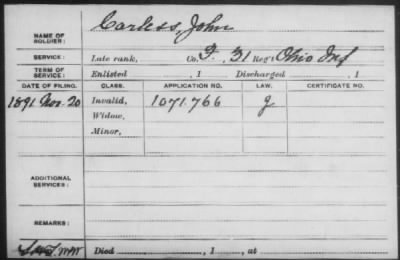 NAME OF SOLDIER: Carless, John
SERVICE: Late rank, Co. 3, 31 Reg't Ohio Inf
TERM OF SERVICE: Enlisted , 1 Discharged , 1
DATE OF FILING. CLASS. APPLICATION NO. LAW. CERTIFICATE NO.
1891 Nov. 20 Invalid, 1071.766 g
Widow,
Minor,
ADDITIONAL SERVICES:
REMARKS:
Died , 1 , at